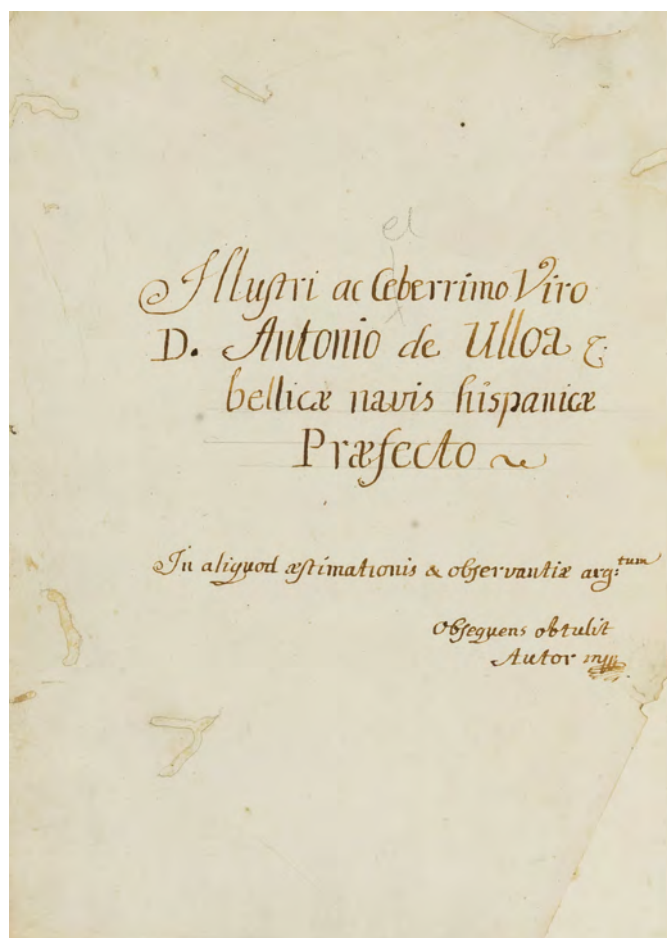 el
Illustri ac Ceberrimo Viro
D. Antonio de Ulloa &
bellicæ navis hispanicæ
Præfecto
In aliquod æstimationis & observantiæ arg:tum
Obsequens obtulit
Autor